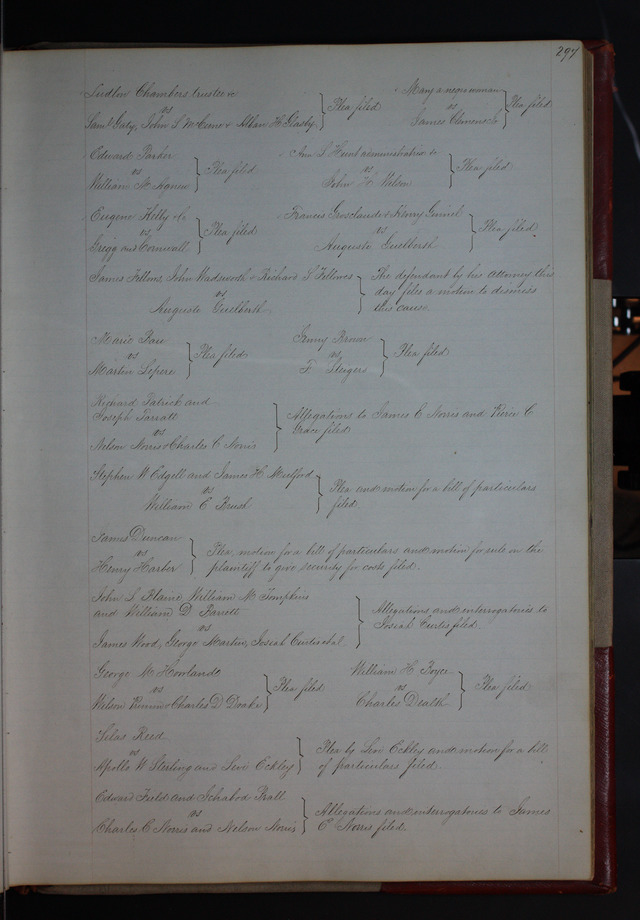 297
Ludlow Chambers, trustee &c
vs
Saml Gaty, John S McCune & Alban H Glasby
Plea filed
Mary a negro woman
vs
James Clemens Jr
Plea filed
Edward Parker
vs
William M Agnew
Plea filed
Ann S Hunt administratrix &c
vs
John H Wilson
Plea filed
Eugene Kelly & Co
vs
Grigg and Cornwall
Plea filed
Francis Grosclaude & Henry
vs
Auguste Guelberth
Plea filed.
James Fellows, John Wadsworth & Richard S Fellowes
vs
Auguste Guelberth
The defendant by his attorney this
day files a motion to dismiss
this cause.
Marie
vs
Martin Lepere
Plea filed
vs
F Steigers
Plea filed
Richard Patrick and
Joseph Tarratt
vs
Nelson Norris & Charles C Norris
Allegations to James C Norris and Pierce C
Grace filed
Stephen W Edgell and James H Mulford
vs
William C Brush
Plea and motion for a bill of particulars
filed.
James Duncan
vs
Henry Harber
Plea, motion for a bill of particulars and motion for rule on the
plaintiff to give security for costs filed.
John S Plaine, William M Tompkins
and William D Barrett
vs
James Wood, George Martin, Josiah
Allegations and interrogatories to
Josiah Curtis filed.
George M Howland
vs
Wilson & Charles D Drake
Plea filed
William H Joyce
vs
Charles Dealth
Plea filed
Silas Reed
vs
Apollo W Sterling and Levi Eckley
Plea by Levi Eckley and motion for a bill
of particulars filed
Edward Field and Ichabod Pratt
vs
Charles C Norris and Nelson Norris
Allegations and interrogatories to James
C Norris filed.